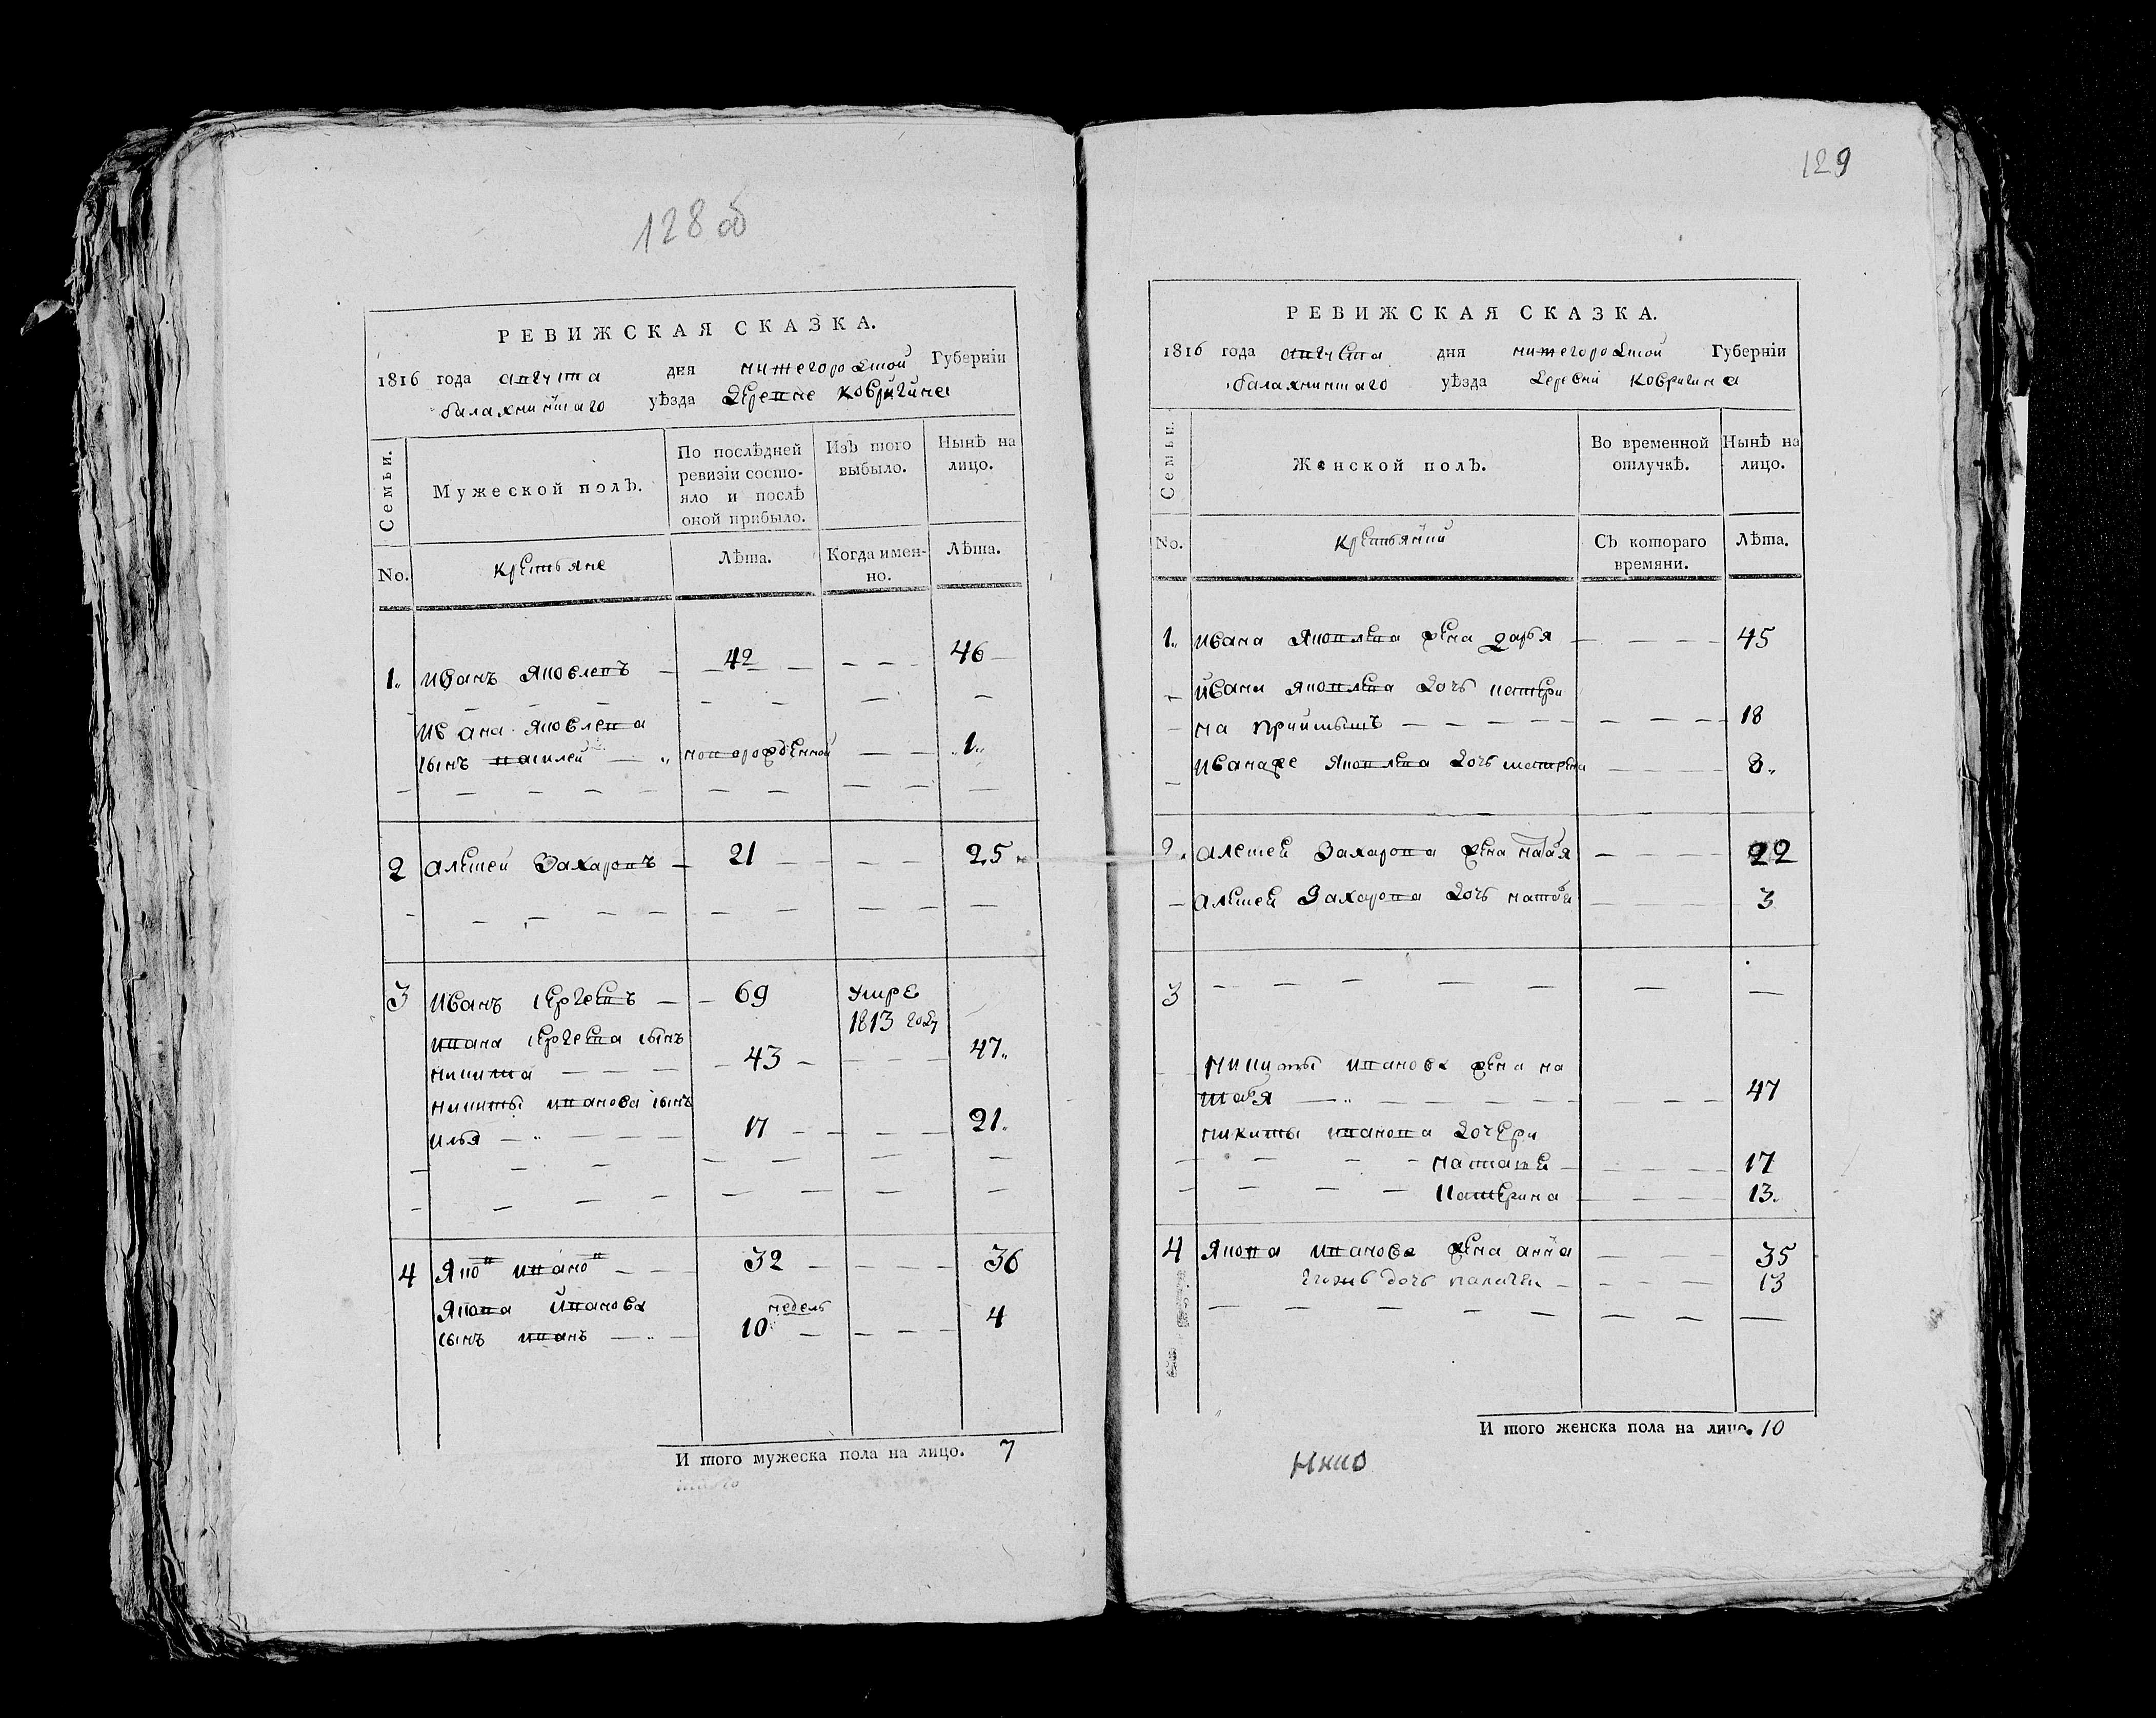 128 об
РЕВИЖСКАЯ СКАЗКА.
1816 года августа дня нижегородской Губерніи
балахнинскаго уѣзда деревне ковригине
Семьи.
Мужеской полЪ.
По послѣдней ревизіи состо-
яло и послѣ оной прибыло.
ИзЪ того выбыло.
Нынѣ на лицо.
No.
крестьяне
Лѣта.
Когда имен-
но.
Лѣта.
1. иванъ яковлевъ 42 46
ивана яковлева
сынъ василей новорожденной 1
2 алексей Захаровъ 21 25
3 иванъ сергеевъ 69 умре
1813 году
ивана сергеева сынъ
никита 43 47
никиты иванова сынъ
илья 17 21
4 яковъ ивановъ 32 36
якова иванова недель
сынъ иванъ 10 4
И того мужеска пола на лицо. 7
129
РЕВИЖСКАЯ СКАЗКА.
1816 года августа дня нижегородской Губерніи
балахнинскаго уѣзда деревни ковригина
Семьи.
Женской полЪ.
Во временной отлучкѣ.
Нынѣ на лицо.
No.
СЪ котораго времяни.
Лѣта.
1. ивана яковлева жена дарья 45
ивана яковлева дочь катери
на 18
ивана же яковлева дочь катерина 8
2. алексея Захарова жена 22
алексея Захарова дочь 3
3
никиты иванова жена на
талья 47
никиты иванова дочери
наталья 17
катерина 13
4 якова иванова жена анна 35
дочь 13
И того женска пола на лицо. 10